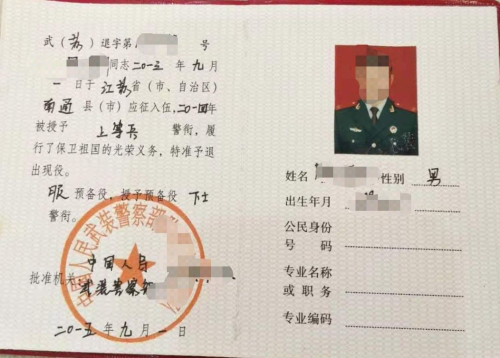 武（苏）退字第 号
同志二〇一三年九月
一日于江苏省（市、自治区）
南通县（市）应征入伍，二〇一四年
被授予上等兵警衔，履
行了保卫祖国的光荣义务，特准予退
出现役。
服预备役，授予预备役下士
警衔。
中国人民武装警察部
批准机关
中国人民
武装警察
二〇一五年九月一日
姓名 性别 男
出生年月
公民身份
号码
专业名称
或职务
专业编码